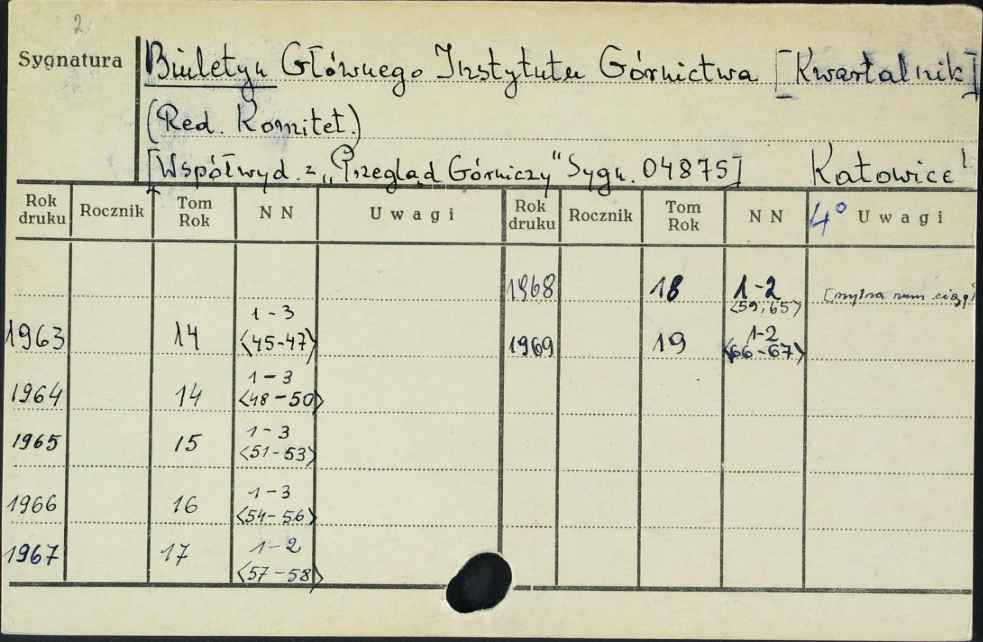 2
Sygnatura
Biuletyn Głównego Instytutu Górnictwa [Kwartalnik]
(Red. Komitet.)
[Współwyd. z „Przegląd Górniczy" Sygn. 04875] Katowice
Rok druku Rocznik Tom Rok N N Uwagi Rok druku Rocznik Tom Rok N N 4° Uwagi
1968 18 1-2 <59, 65> [mylna num. ciągł
1963 14 1-3 <45-47> 1969 19 1-2 <66-67>
1964 14 1-3 <48-50>
1965 15 1-3 <51-53>
1966 16 1-3 <54-56>
1967 17 1-2 <57-58>